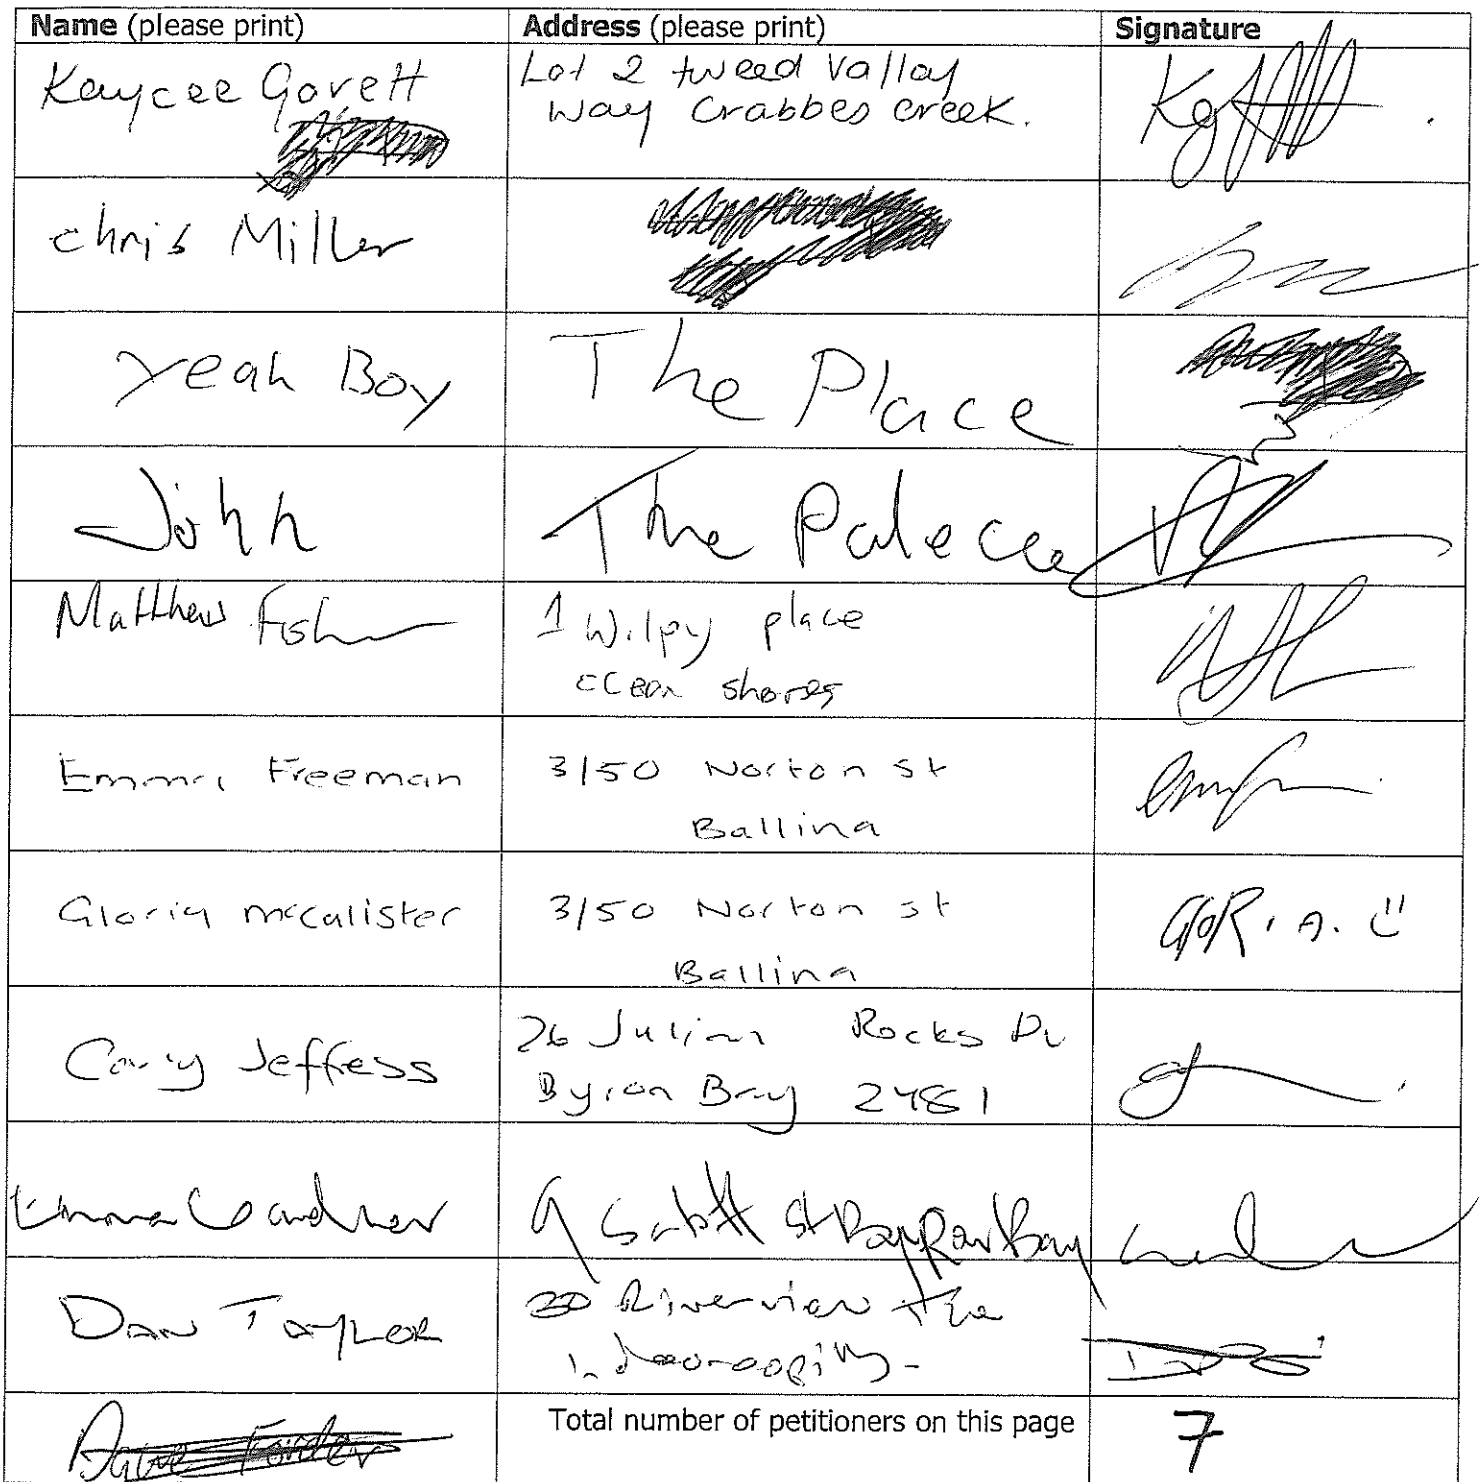 Name (please print) Address (please print) Signature
Kaycee Govett Lot 2 tweed Valley
way Crabbes creek.
chris Miller
Yeah Boy The Place
John The Palece
Matthew Fisher 1 Wilpy place
ocean shores
Emma Freeman 3/50 Norton st
Ballina
Gloria mccalister 3/50 Norton st
Ballina
Jeffess 26 Julian Rocks Dr
Byron Bay 2481
Emma 9 St Bay
Dan Taylor Riverview
Total number of petitioners on this page 7